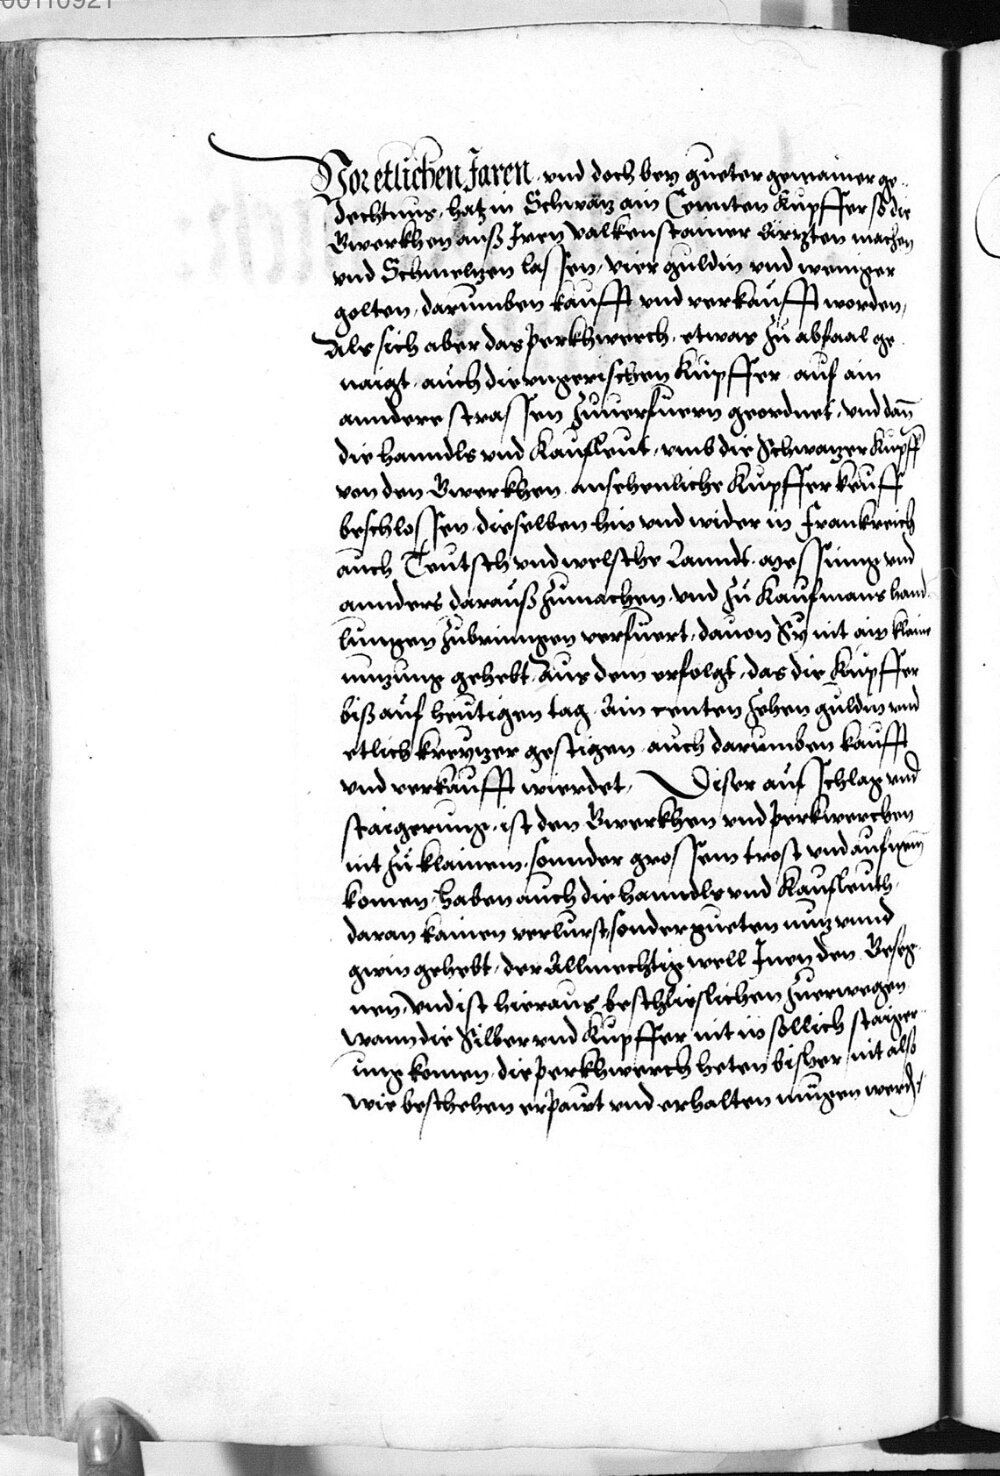 00110921
Vor etlichen Jaren, vnd doch bey gueter gemainer ge„
dechtnus, hat in Schwaz ain Cennten Kupffer so die
Gwerkhen auß Iren Valkenstainer Ärzten machen
vnd Schmeltzen lassen, vier guldin vnd weniger
golten, darumben kaufft vnd verkaufft worden,
Als sich aber das Perkhwerch, etwas zu abfaal ge„
naigt, auch die vngerischen Kupffer auf ain
anndere strassen zuuerfuern geordnet, vnd dan
die hanndls vnd Kaufleut, vmb die Schwatzer Kupff
von den Gwerkhen ansehenliche Kupffer keuff
beschlossen, dieselben hin vnd wider in Frankreich
auch Teutsch vnd welsche Lannd, messing vnd
annders darauß zumachen, vnd zu Kaufmans hand„
lungen zubringen verfuert, dauon Sy nit ain klaine
nuzung gehebt, Aus dem erfolgt, das die Kupffer
biß auf heutigen tag, Ain centen zehen guldin vnd
etlich kreytzer gestigen, auch darumben kaufft
vnd verkaufft wierdet, Diser aufschlag vnd
staigerung, ist den Gwerkhen vnd Perkwerchen
nit zu klainem, sonnder grossem trost vnd aufnem
komen, haben auch die hanndls vnd Kaufleuth,
daran kainen verlurst, sonder gueten nuz vnnd
gwin gehebt, der Allmechtig well Inen den Geseg„
nen, vnd ist hieraus beschlieslichen zuerwegen
wann die Silber vnd Kupffer nit in söllich staiger„
ung komen, die Perkhwerch heten bisher nit also
wie beschehen erpawt vnd erhalten mugen werden